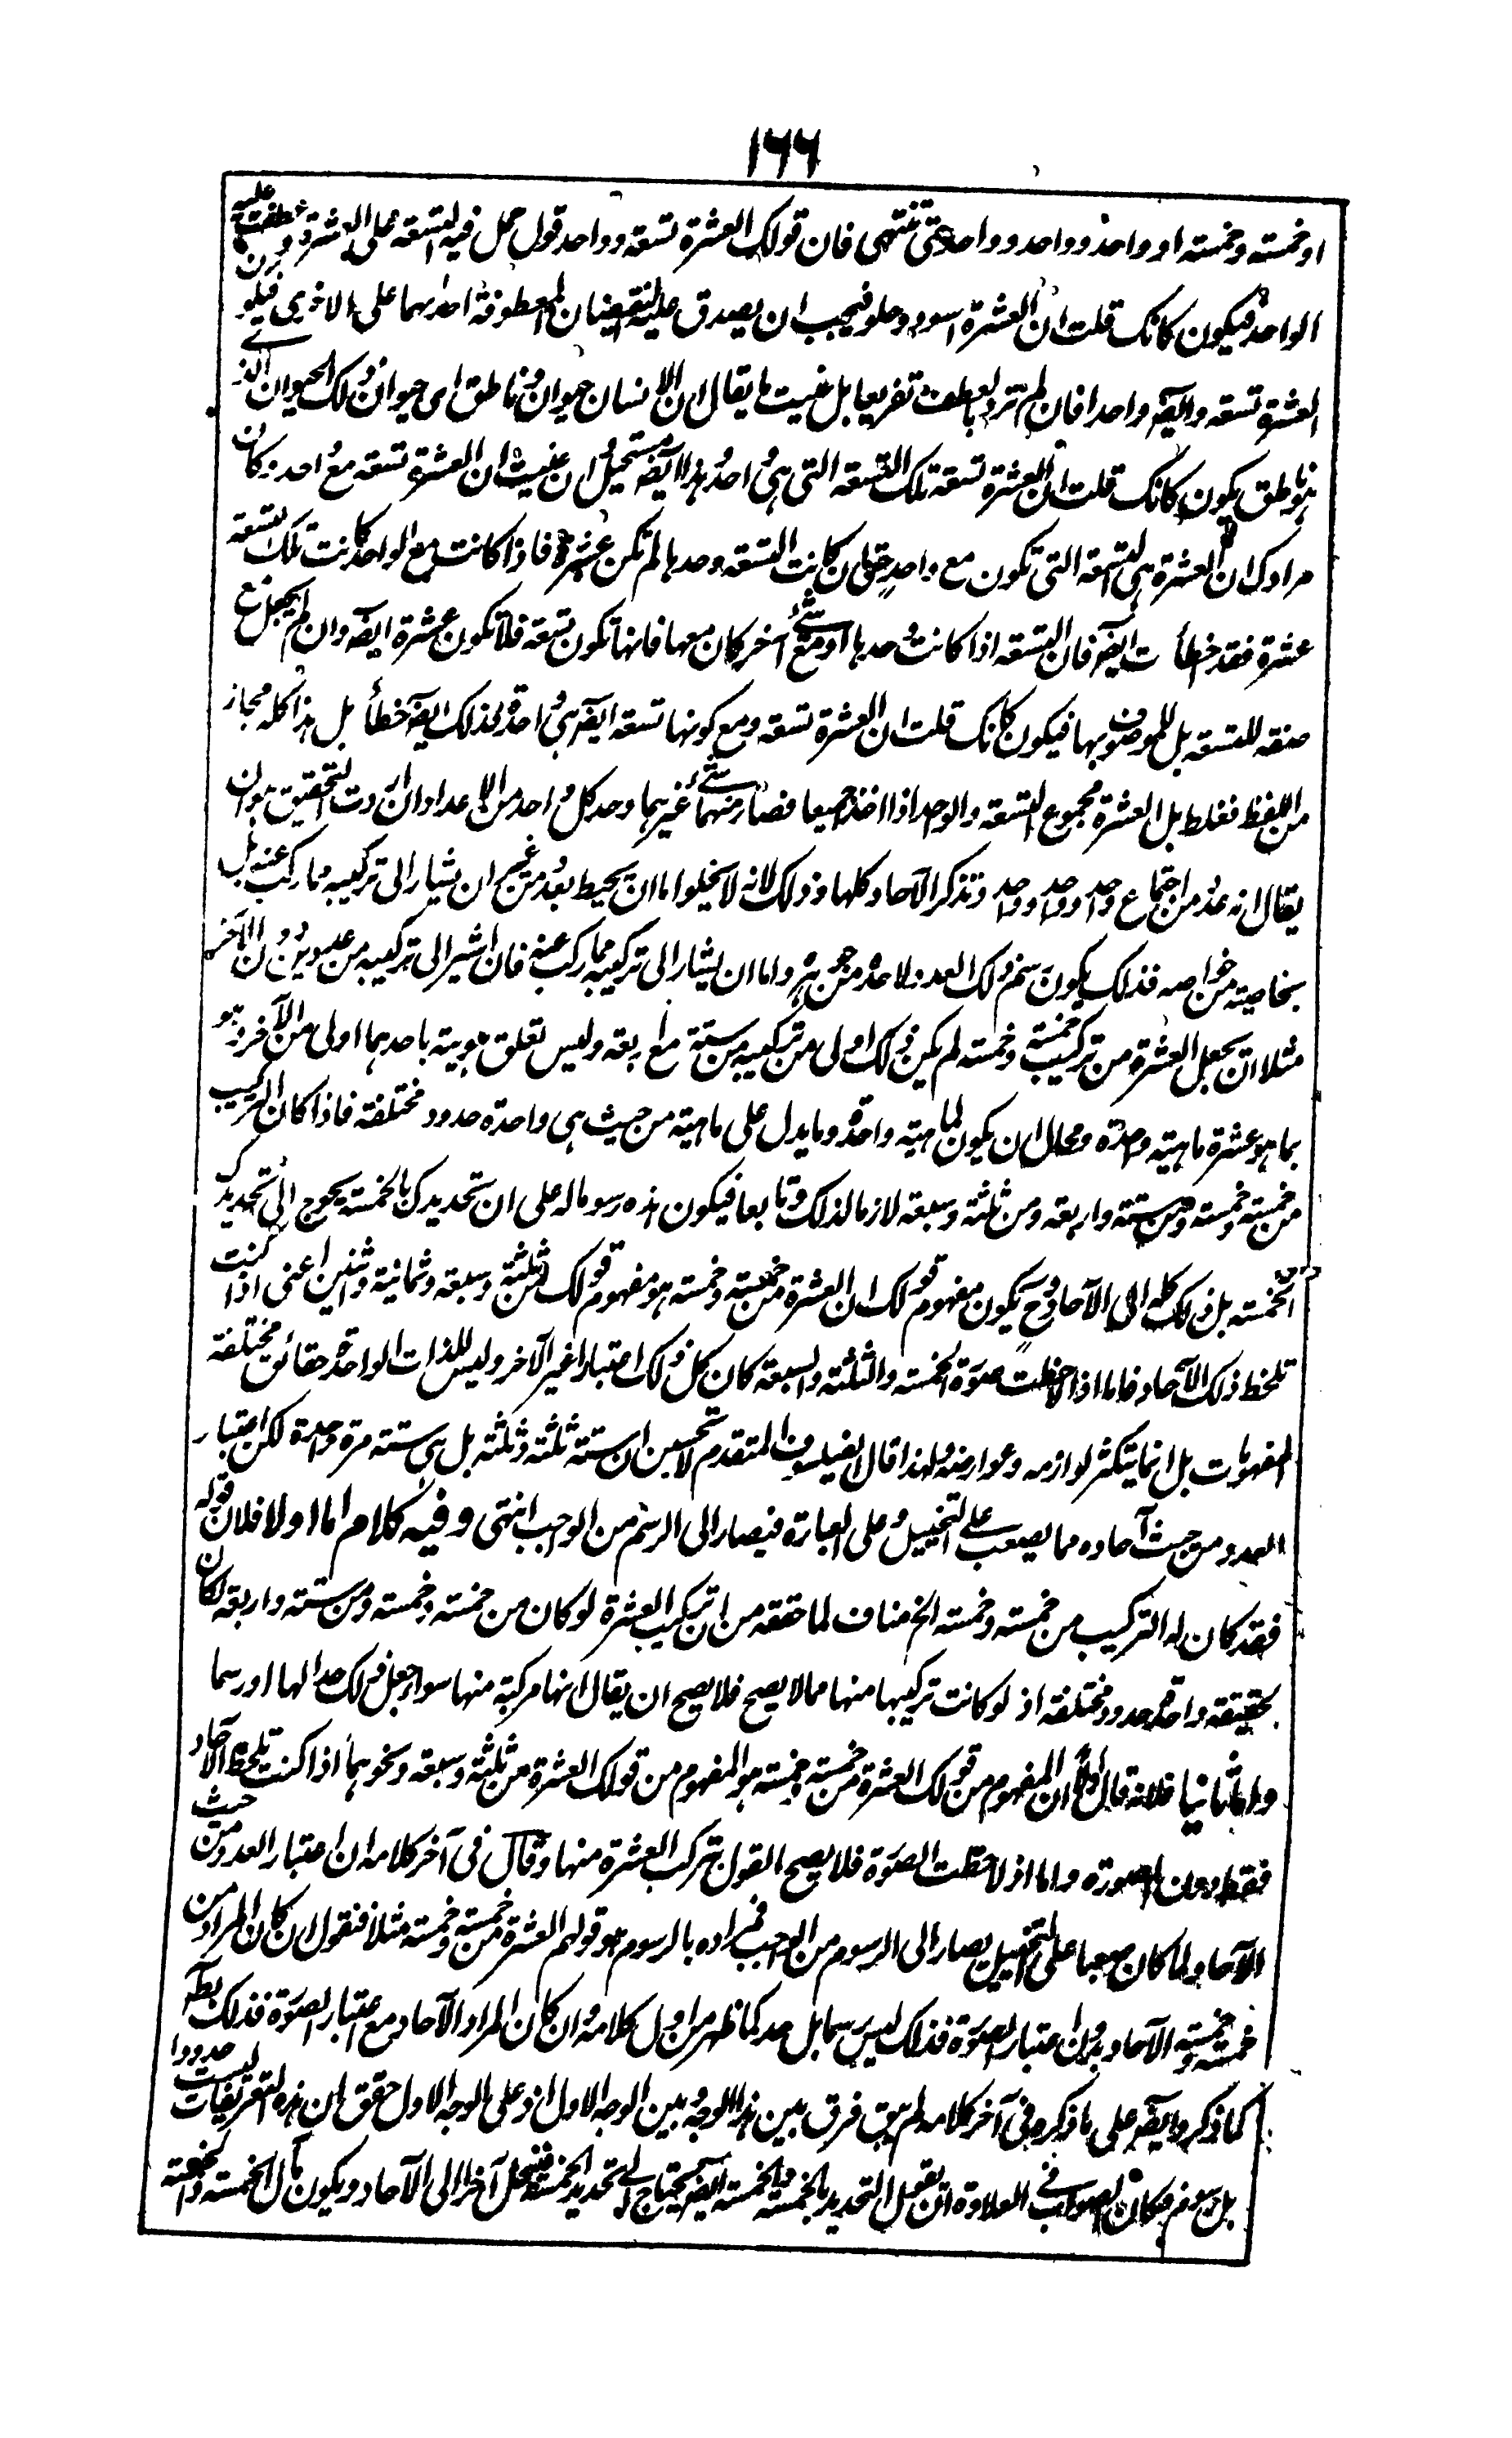 ١٦٦
او خمسته وخمسته او واحد وواحد وواحد حتى تنتهى فان قولك العشرة تسعة وواحد قول حمل فيه التسعة على العشرة وعطفت عليه
الواحد فيكون كانك قلت ان العشرة اسود وحلو فيجب ان يصدق عليه النقيضان المعطوفة احدهما على الاخرى فيكون
العشرة تسعة وايضه واحدا فان لم ترد بالعطف تفريعا بل عنيت ما يقال ان الانسان حيوان وناطق اى حيوان ذلك الحيوان الذى
هو ناطق يكون كانك قلت ان العشرة تسعة تلك التسعة التى هى واحد وهذا ايضه مستحيل وان عنيت ان العشرة تسعة مع احد وكان
مرادك ان العشرة هى التسعة التى تكون مع واحد حتى ان كانت التسعة وحدها لم تكن عشرة فاذا كانت مع الواحد كانت تلك التسعة
عشرة فقد خطأت ايضه فان التسعة اذا كانت وحدها او مع شئ آخر كان معها فانها تكون تسعة فلا تكون عشرة ايضه وان لم يجعل مع
صفة للتسعة بل للموصوف بها فيكون كانك قلت ان العشرة تسعة ومع كونها تسعة ايضه هى واحدة فذلك ايضه خطأ بل هذا كله مجاز
من اللفظ مغلط بل العشرة مجموع التسعة والواحد اذا اخذا جميعا فصار منهما شئ غيرهما وحد كل واحد من الاعداد ان اردت التحقيق هو ان
يقال انه عدد من اجتماع واحد وواحد وواحد وتذكر الآحاد كلها وذلك لانه لا يخلوا اما ان يحيط بعدد من غير ان يشار الى تركيبه مما ركب عنه بل
بخاصية من خواصه فذلك يكون رسم ذلك العدد لا حده من جوهره واما ان يشار الى تركيبه مما ركب عنه فان اشير الى تركيبه من عددين دون الآخر
مثلا ان يجعل العشرة من تركيب خمسة وخمسة لم يكن ذلك اولى من تركيبه من ستة مع اربعة وليس تعلق هويته باحدهما اولى من الآخر وهو
بما هو عشرة ماهية واحدة ومحال ان يكون لماهية واحدة وما يدل على ماهية من حيث هى واحدة حدود مختلفة فاذا كان التركيب
من خمسة وخمسة ومن ستة واربعة ومن ثلثة وسبعة لازما لذلك وتابعا فيكون هذه رسوما له على ان تحديدك بالخمسة يحوج الى تحديدك
الخمسة بل ذلك كله الى الآحاد وح يكون مفهوم قولك ان العشرة من خمسة وخمسة هو مفهوم قولك من ثلثة وسبعة وثمانية واثنين اعنى اذا كنت
تلحظ ذلك الآحاد فاما اذا لاحظت صورة الخمسة والثلثة والسبعة كان كل ذلك اعتبارا غير الآخر وليس للذات الواحدة حقائق مختلفة
المفهومات بل انما يتكثر لوازمه وعوارضه ولهذا قال الفيلسوف المتقدم لا تحسبن ان ستة ثلثة وثلثة بل هى ستة مرة واحدة لكن اعتبار
العدد من حيث آحاده مما يصعب على التخييل وعلى العبارة فيصار الى الرسم من الواجب انتهى وفيه كلام اما اولا فلان قوله
فقد كان له التركيب من خمسة وخمسة الخ مناف لما حققه من ان تركيب العشرة لو كان من خمسة وخمسة ومن ستة واربعة لكان
لحقيقة واحدة حدود مختلفة اذ لو كانت تركيبها منها مما لا يصح فلا يصح ان يقال انها مركبة منها سواء جعل ذلك حدا لها او رسما
واما ثانيا فلانه قال اولا ان المفهوم من قولك العشرة من خمسة وخمسة هو المفهوم من قولك العشرة من ثلثة وسبعة ونحوهما اذا كنت تلحظ الآحاد
فقط دون الصورة واما اذ لاحظت الصورة فلا يصح القول بتركب العشرة منها وقال فى آخر كلامه ان اعتبار العدد من حيث
الآحاد لما كان صعبا على التخييل يصار الى الرسوم من الواجب فمراده بالرسوم هو قولهم العشرة من خمسة وخمسة مثلا فنقول ان كان المراد من
خمسة وخمسة الآحاد بدون اعتبار الصورة فذلك ليس رسما بل حد كما ظهر من اول كلامه وان كان المراد الآحاد مع اعتبار الصورة فذلك بطه
كما ذكر وايضه على ما ذكره فى آخر كلامه لم يبق فرق بين هذا الوجه وبين الوجه الاول اذ على الوجه الاول حقق ان هذه التعريفات ليست حدودا
بل رسوم فكان الصواب فى العلاوة ان يقول التحديد بالخمسة والخمسة ايضه يحتاج الى تحديد الخمسة فينحل آخرا الى الآحاد ويكون مآل الخمسة والخمسة